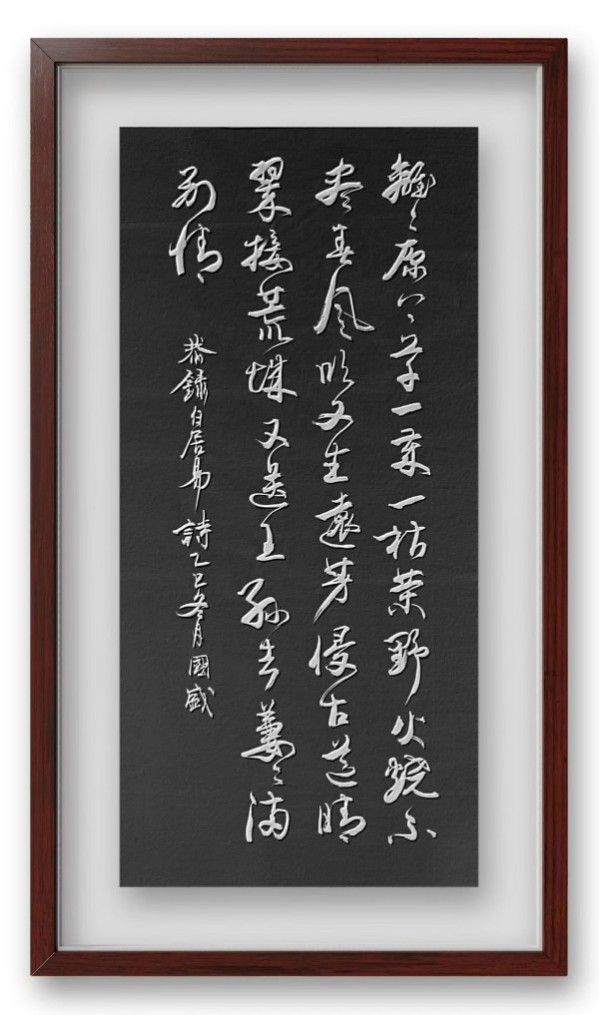 離〻原上草一歲一枯榮野火燒不
盡春風吹又生遠芳侵古道晴
翠接荒城又送王孫去萋〻滿
別情
恭錄白居易詩乙巳冬月國盛